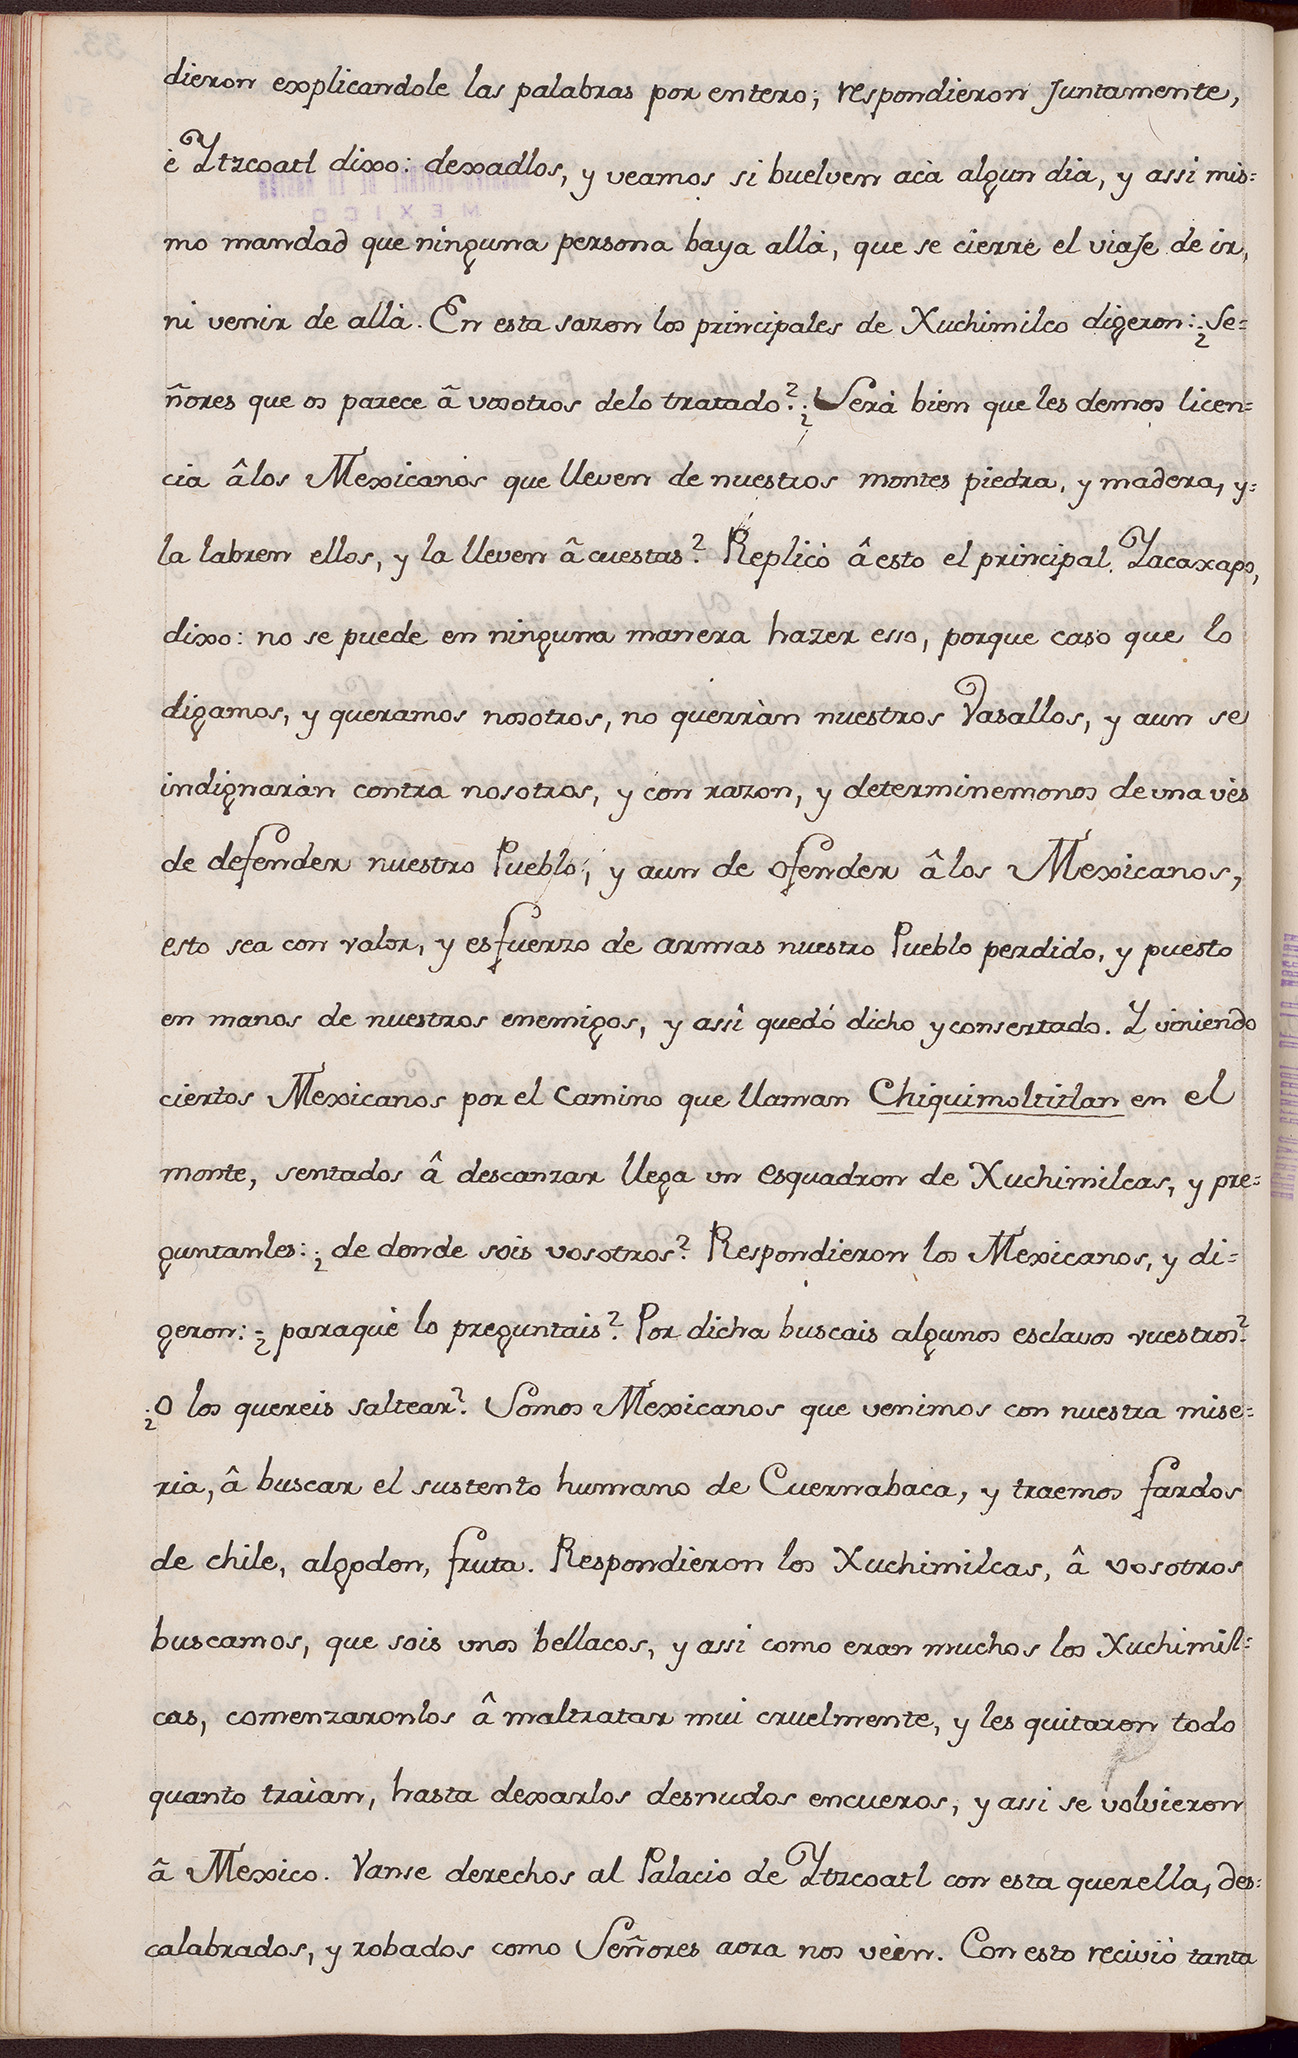 dieron explicandole las palabras por entero; respondieron Juntamente,
è Ytzcoatl dixo: dexadlos, y veamos si buelven acà algun dia, y assi mis=
mo mandad que ninguna persona baya allà, que se cierre el viaJe de ir,
ni venir de allà. En esta sazon los principales de Xuchimilco digeron: ¿Se=
ñores que os parece â vosotros delo tratado? ¿Serà bien que les demos licen=
cia âlos Mexicanos que lleven de nuestros montes piedra, y madera, y=
la labren ellos, y la lleven âcuestas? Replicò âesto el principal Yacaxapo,
dixo: no se puede en ninguna manera hazer esso, porque caso que lo
digamos, y queramos nosotros, no querràn nuestros Vasallos, y aun se
indignaràn contra nosotros, y con razon, y determinemonos deuna vès
de defender nuestro Pueblo; y aun de ofender âlos Mexicanos,
esto sea con valor, y esfuerzo de armas nuestro Pueblo perdido, y puesto
en manos de nuestros enemigos, y assî quedó dicho yconsertado. Y viniendo
ciertos Mexicanos por el camino que llaman Chiquimoltitlan en el
monte, sentados â descanzar llega un esquadron de Xuchimilcas, y pre=
guntanles: ¿de donde sois vosotros? Respondieron los Mexicanos, y di=
geron: ¿paraquè lo preguntais? Por dicha buscais algunos esclavos vuestros?
¿O los quereis saltear? Somos Mexicanos que venimos con nuestra mise=
ria, â buscar el sustento humano de Cuernabaca, y traemos fardos
de chile, algodon, fruta. Respondieron los Xuchimilcas, â vosotros
buscamos, que sois unos bellacos, y assi como eran muchos los Xuchimil=
cas, comenzaronlos â maltratar mui cruelmente, y les quitaron todo
quanto traian, hasta dexarlos desnudos encueros, y assi se volvieron
â Mexico. Vanse derechos al Palacio de Ytzcoatl con esta querella, des=
calabrados, y robados como Señores aora nos vèen. Con esto reciviò tanta
ARCHIVO GENERAL DE LA NACION
MEXICO
ARCHIVO GENERAL DE LA NACION
33.